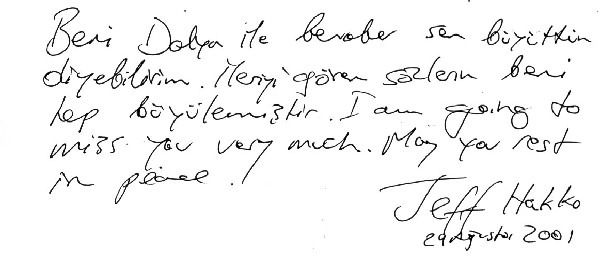 Beni Dalya ile beraber sen büyüttün
diyebilirim. İleriyi gören sözlerin beni
hep büyülemiştir. I am going to
miss you very much. May you rest
in peace.
Jeff Hakko
29 Ağustos 2001